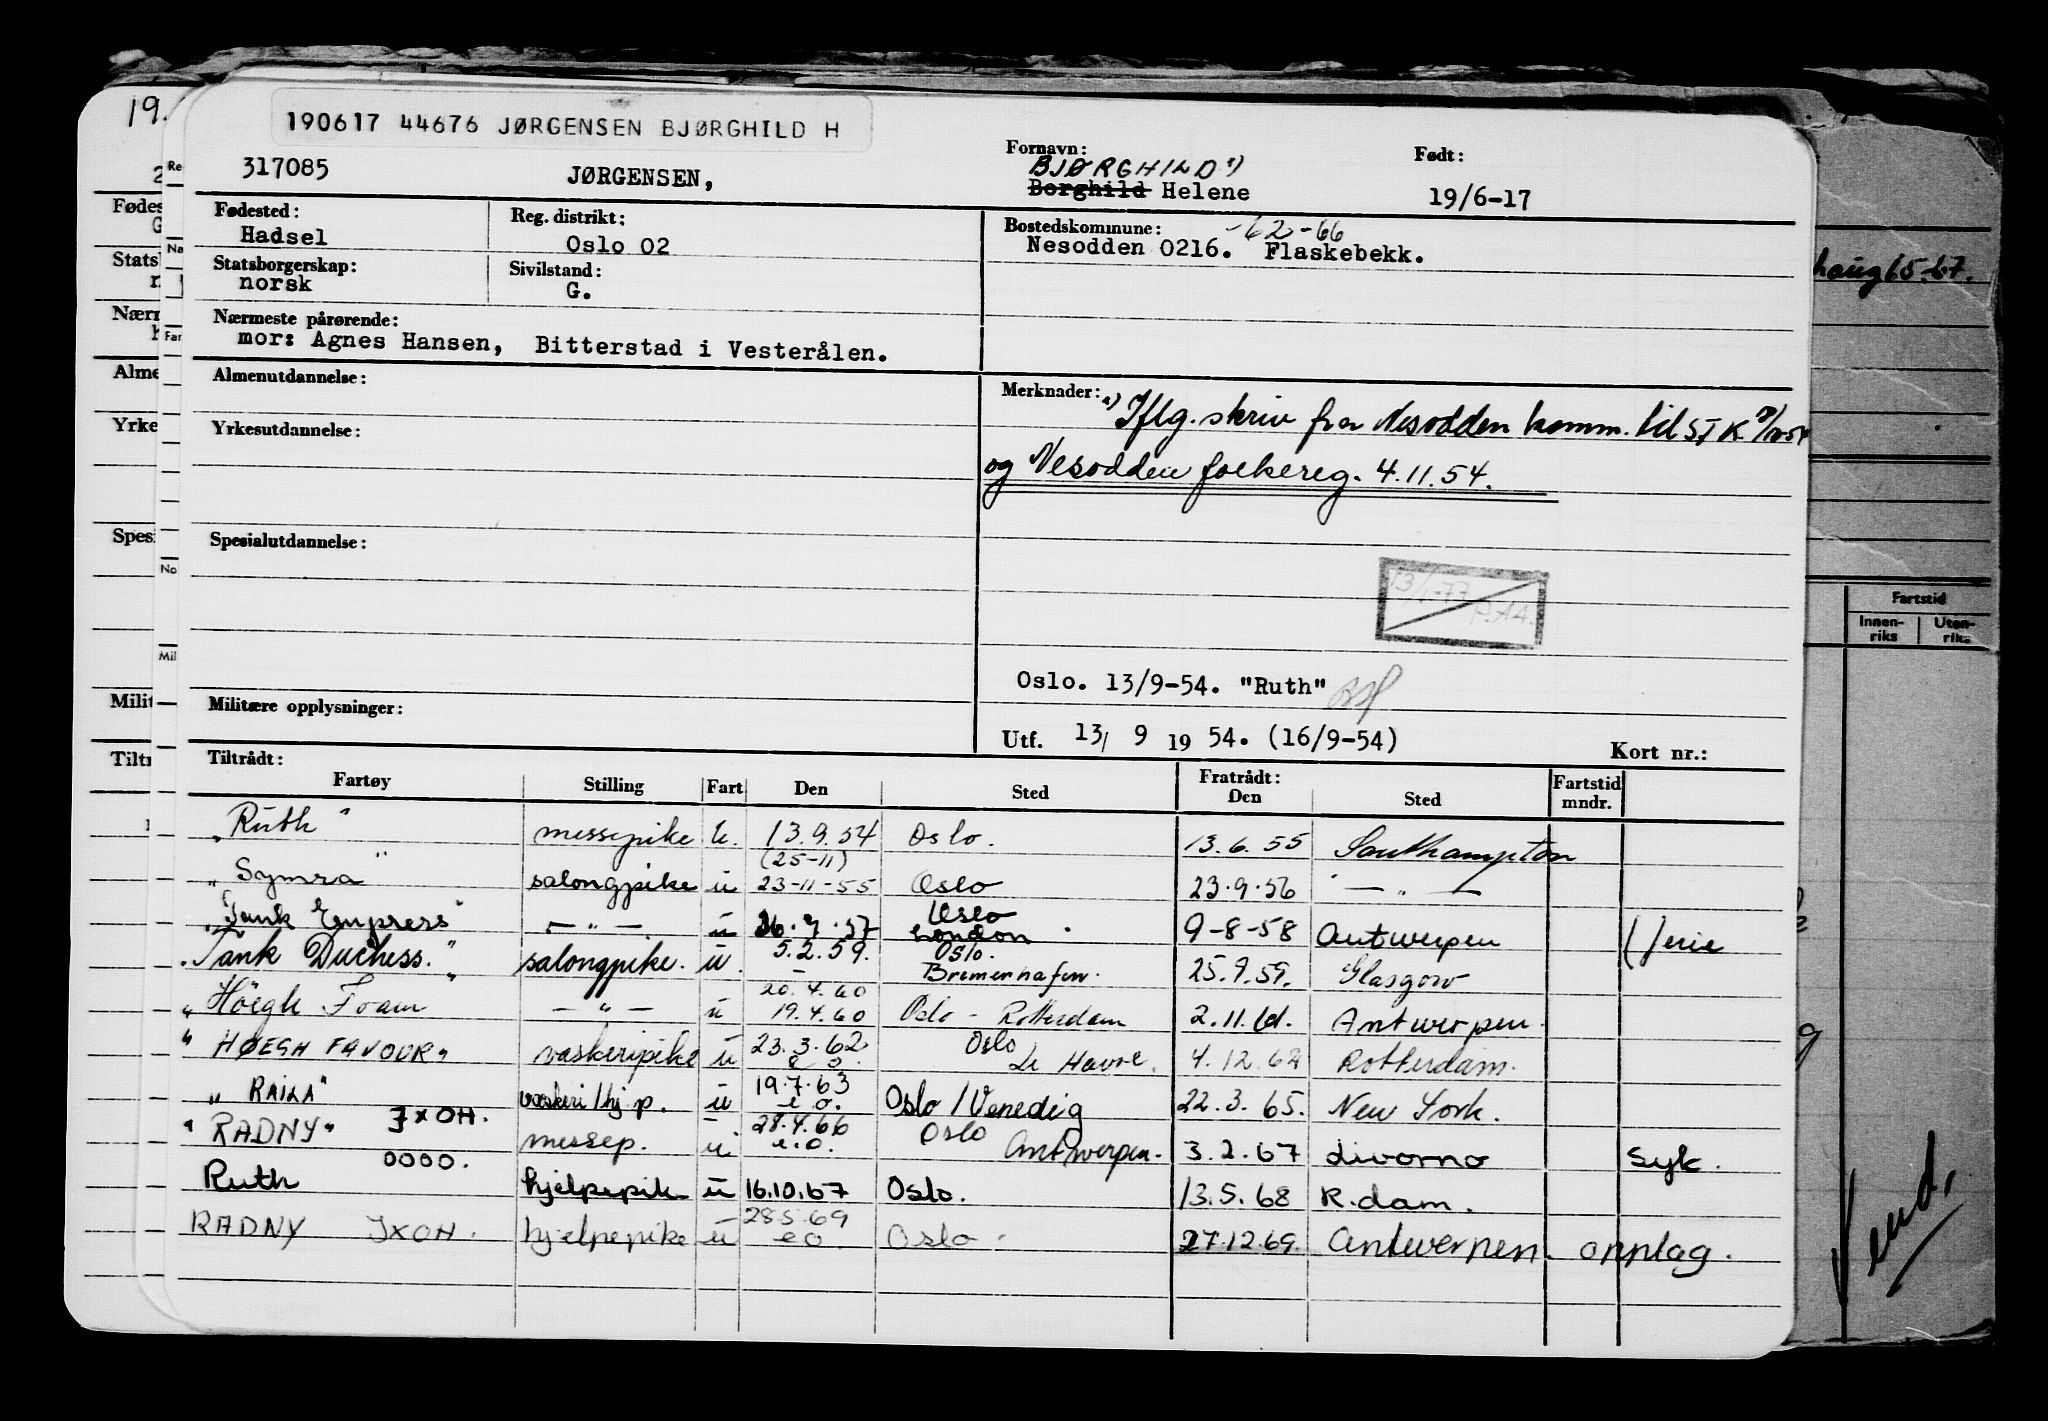 190617 44676 JØRGENSEN BJØRGHILD H
317085 JØRGENSEN,
Fornavn:
BJØRGHILD
Borghild Helene
Født:
19/6-17
Fødested:
Hadsel
Reg. distrikt:
Oslo 02
Bostedskommune: -62-66
Nesodden 0216. Flaskebekk.
Statsborgerskap:
norsk
Sivilstand:
G.
Nærmeste pårørende:
mor: Agnes Hansen, Bitterstad i Vesterålen.
Almenutdannelse:
Merknader:
Iflg. skriv fra Nesodden komm. til
og Nesodden folkereg. 4.11.54.
Yrkesutdannelse:
Spesialutdannelse:
Oslo. 13/9-54. "Ruth"
Militære opplysninger:
Utf. 13/ 9 19 54. (16/9-54)
Kort nr.:
Tiltrådt:
Fartøy Stilling Fart Den Sted
Fratrådt:
Den Sted
Fartstid
mndr.
"Ruth" messepike u. 13.9.54 Oslo. 13.6.55 Southampton
(25-11)
"Symra" salongpike u 23-11-55 Oslo 23.9.56 — " —
Oslo
"Tank Empress" — " — u London 9-8-58 Antwerpen ferie
"Tank Duchess." salongpike. u. 5.2.59. Oslo. Bremenhafen. 25.9.59. Glasgow
20.4.60
"Höegh Foam" — " — u 19.4.60 Oslo - Rotterdam 2.11.61. Antwerpen.
"HØEGH FAVOUR" vaskeripike u 23.3.62 Oslo Le Havre. 4.12.62 Rotterdam.
"RAILA" vaskeri/hj.p. u 19.7.63 e.o. Oslo/Venedig 22.3.65. New York.
"RADNY" JXOH. messep. u 28.4.66 e.o. Oslo Antwerpen. 3.2.67 Livorno syk.
Ruth OOOO. hjelpepik u 16.10.67 Oslo. 13.5.68 R.dam.
RADNY JXOH. hjelpepike u 28.5.69 e o Oslo. 27.12.69. Antwerpen. opplag.
19.
Føde
Stats
Nærm
Alme
Yrke
Spesi
Milit
Tiltr
Re
Na
Far
No
Mil
haug 65-67.
Fartstid
Innen-
riks
Uten-
riks
Vend.